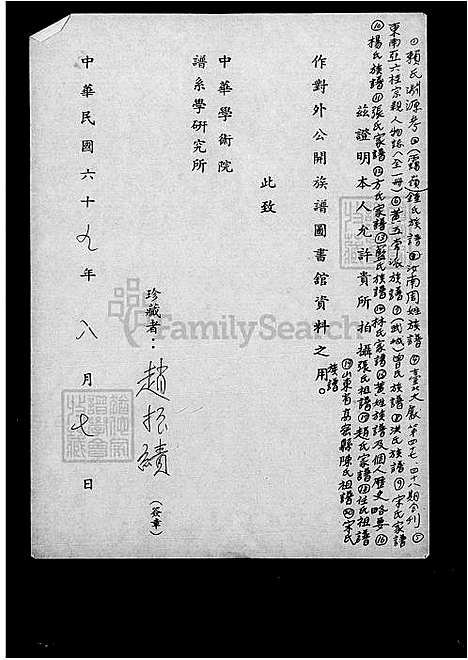 ①賴氏淵源考②(霞嶺)鍾氏族譜③汝南周姓族譜④臺北文獻第四七、四十八期合刊⑤
東南亞六桂宗親人物誌(全一冊)⑥黃五常派族譜⑦(武城)曾氏族譜⑧洪氏族譜⑨宋氏家譜
⑩楊氏族譜⑪張氏家譜⑫方氏家譜⑬藍氏族譜⑭林氏家譜⑮黃姓族譜及個人歷史略要⑯
茲證明本人允許貴所拍攝張氏祖譜⑰趙氏家譜⑱任氏祖譜
⑲山東省高密縣陳氏祖譜⑳宋氏
族譜
作對外公開族譜圖書館資料之用。
此致
中華學術院
譜系學研究所
珍藏者:趙振績(簽章)
中華民國六十九年八月七日
FamilySearch